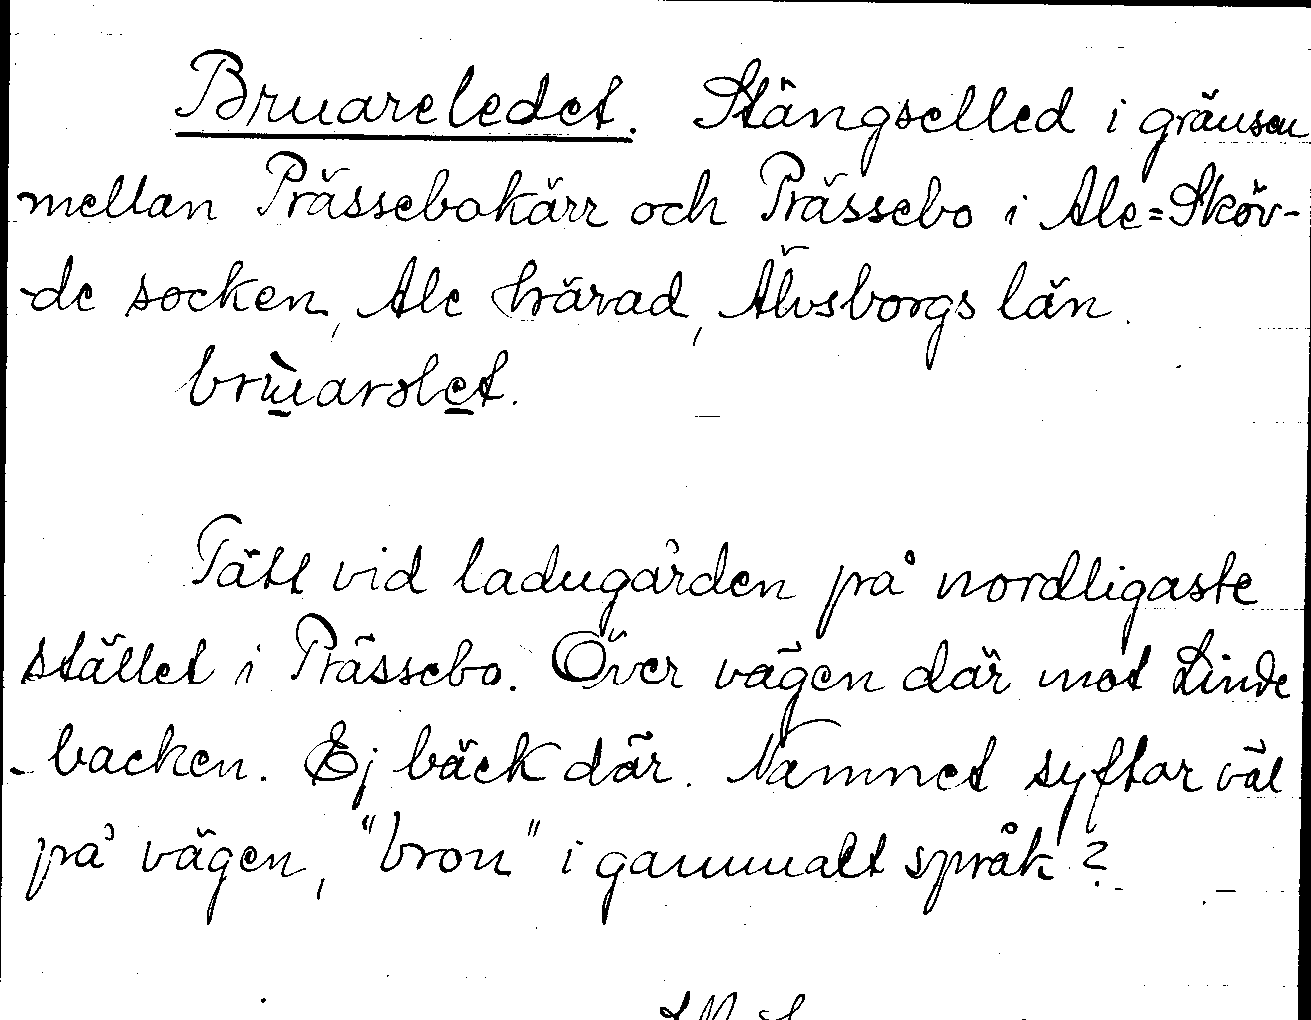 Bruareledet. Stängselled i gränsen
mellan Prässebokärr och Prässebo i Ale=Sköv-
-de socken, Ale härad, Älvsborgs län.
brùarslet.
Tätt vid ladugården på nordligaste
stället i Prässebo. Över vägen där mot Linde
-backen. Ej bäck där. Namnet syftar väl
på vägen, "bron" i gammalt språk?